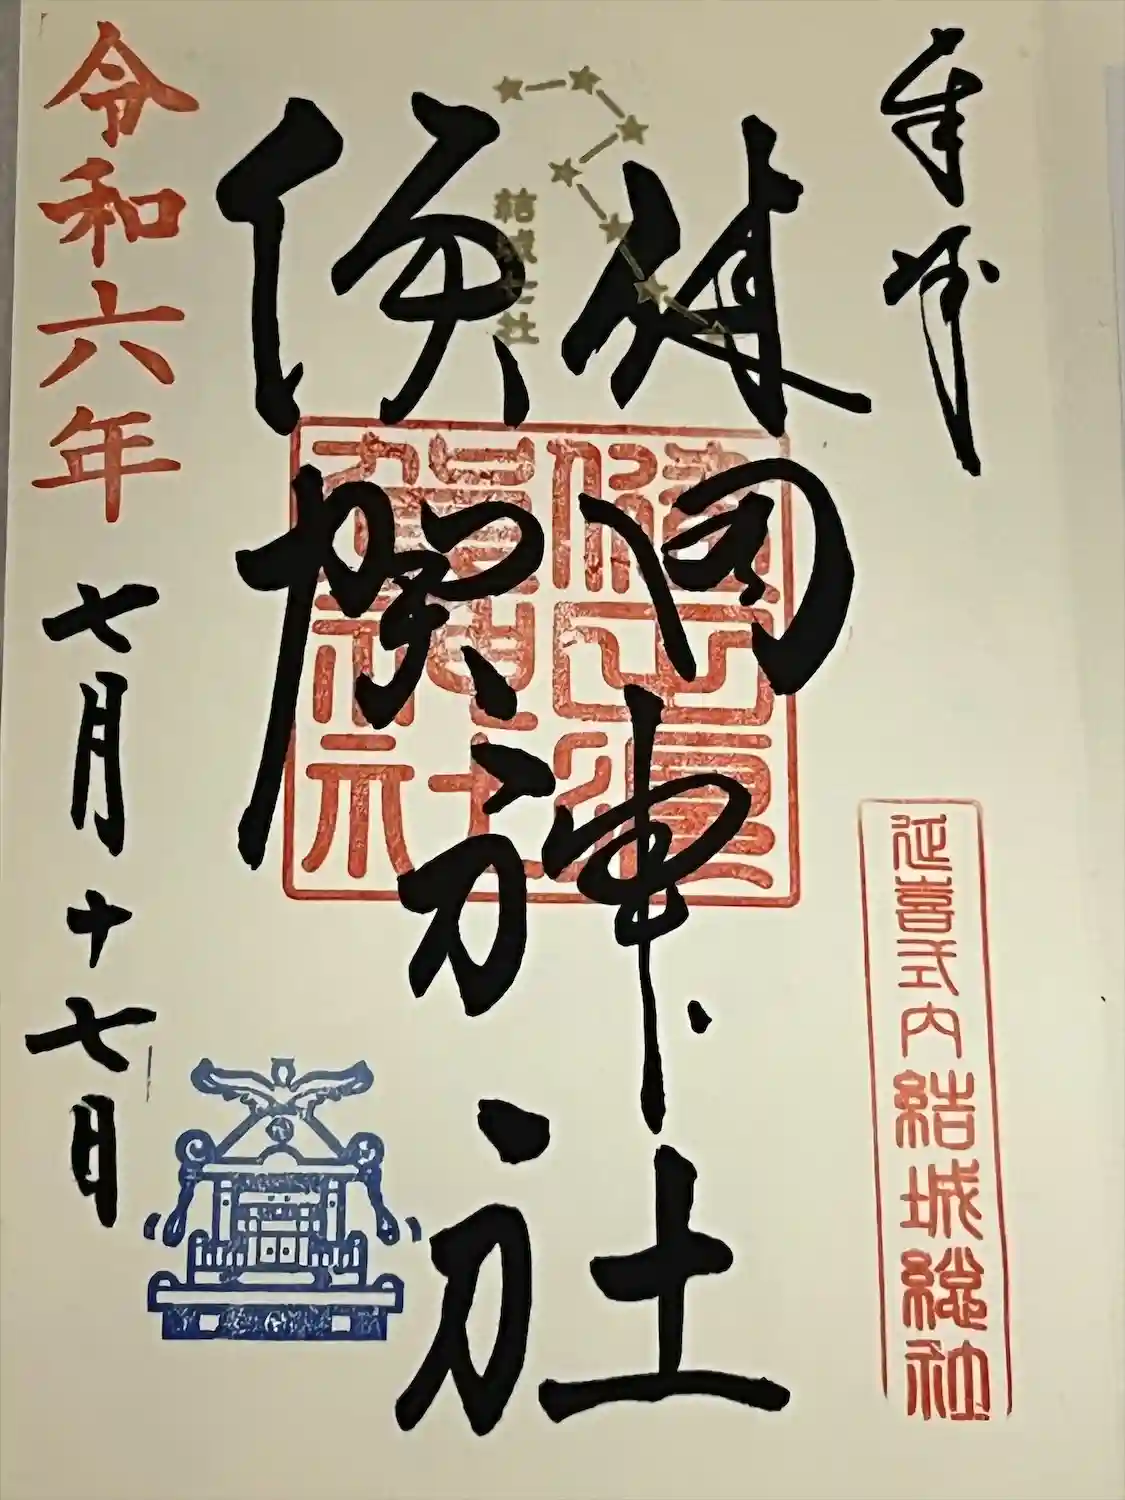 奉拝
延喜式内結城総社
健田
須賀
神社
健田須賀神社
結城七社
令和六年七月十七日